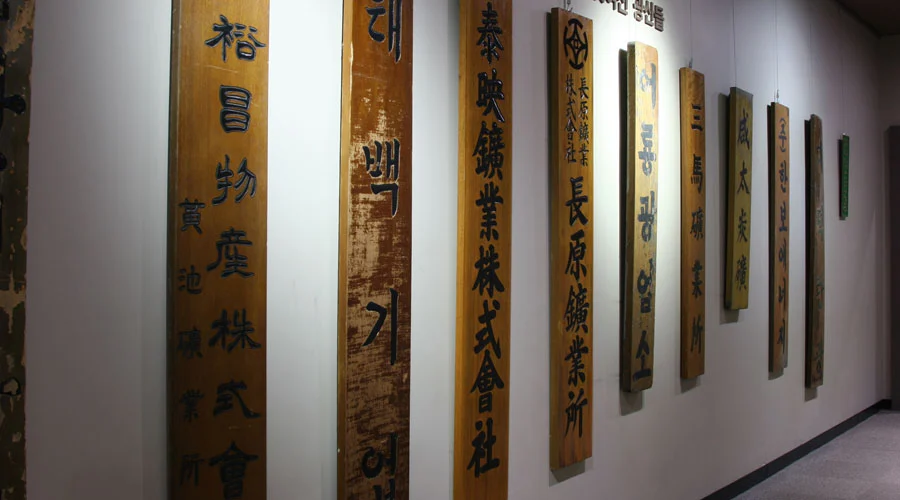 裕昌物産株式會
黃池礦業所
태백기업
泰映鑛業株式會社
長原鑛業
株式會社
長原鑛業所
어룡광업소
三馬礦業所
咸太炭礦
㈜한보에너지